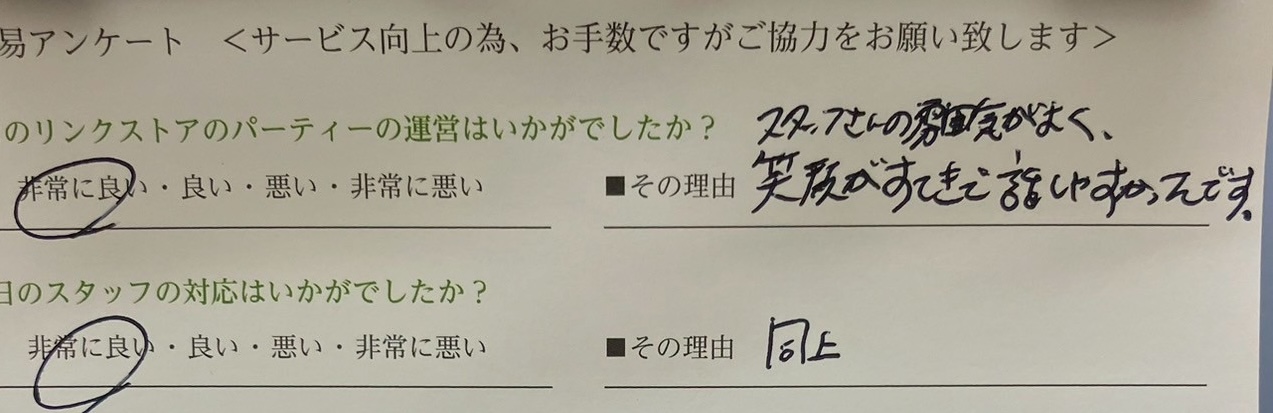 易アンケート ＜サービス向上の為、お手数ですがご協力をお願い致します＞
のリンクストアのパーティーの運営はいかがでしたか？ スタッフさんの雰囲気がよく、
非常に良い・良い・悪い・非常に悪い ■その理由 笑顔がすてきで話しやすかったです。
日のスタッフの対応はいかがでしたか？
非常に良い・良い・悪い・非常に悪い ■その理由 同上